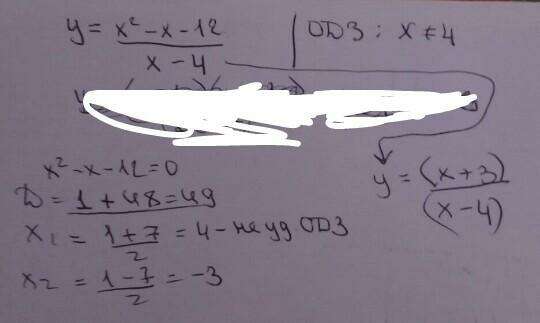 y = (x² - x - 12)/(x - 4) | ОДЗ: x ≠ 4
x² - x - 12 = 0
D = 1 + 48 = 49
x₁ = (1 + 7)/2 = 4 - не уд ОДЗ
x₂ = (1 - 7)/2 = -3
y = (x + 3)/(x - 4)